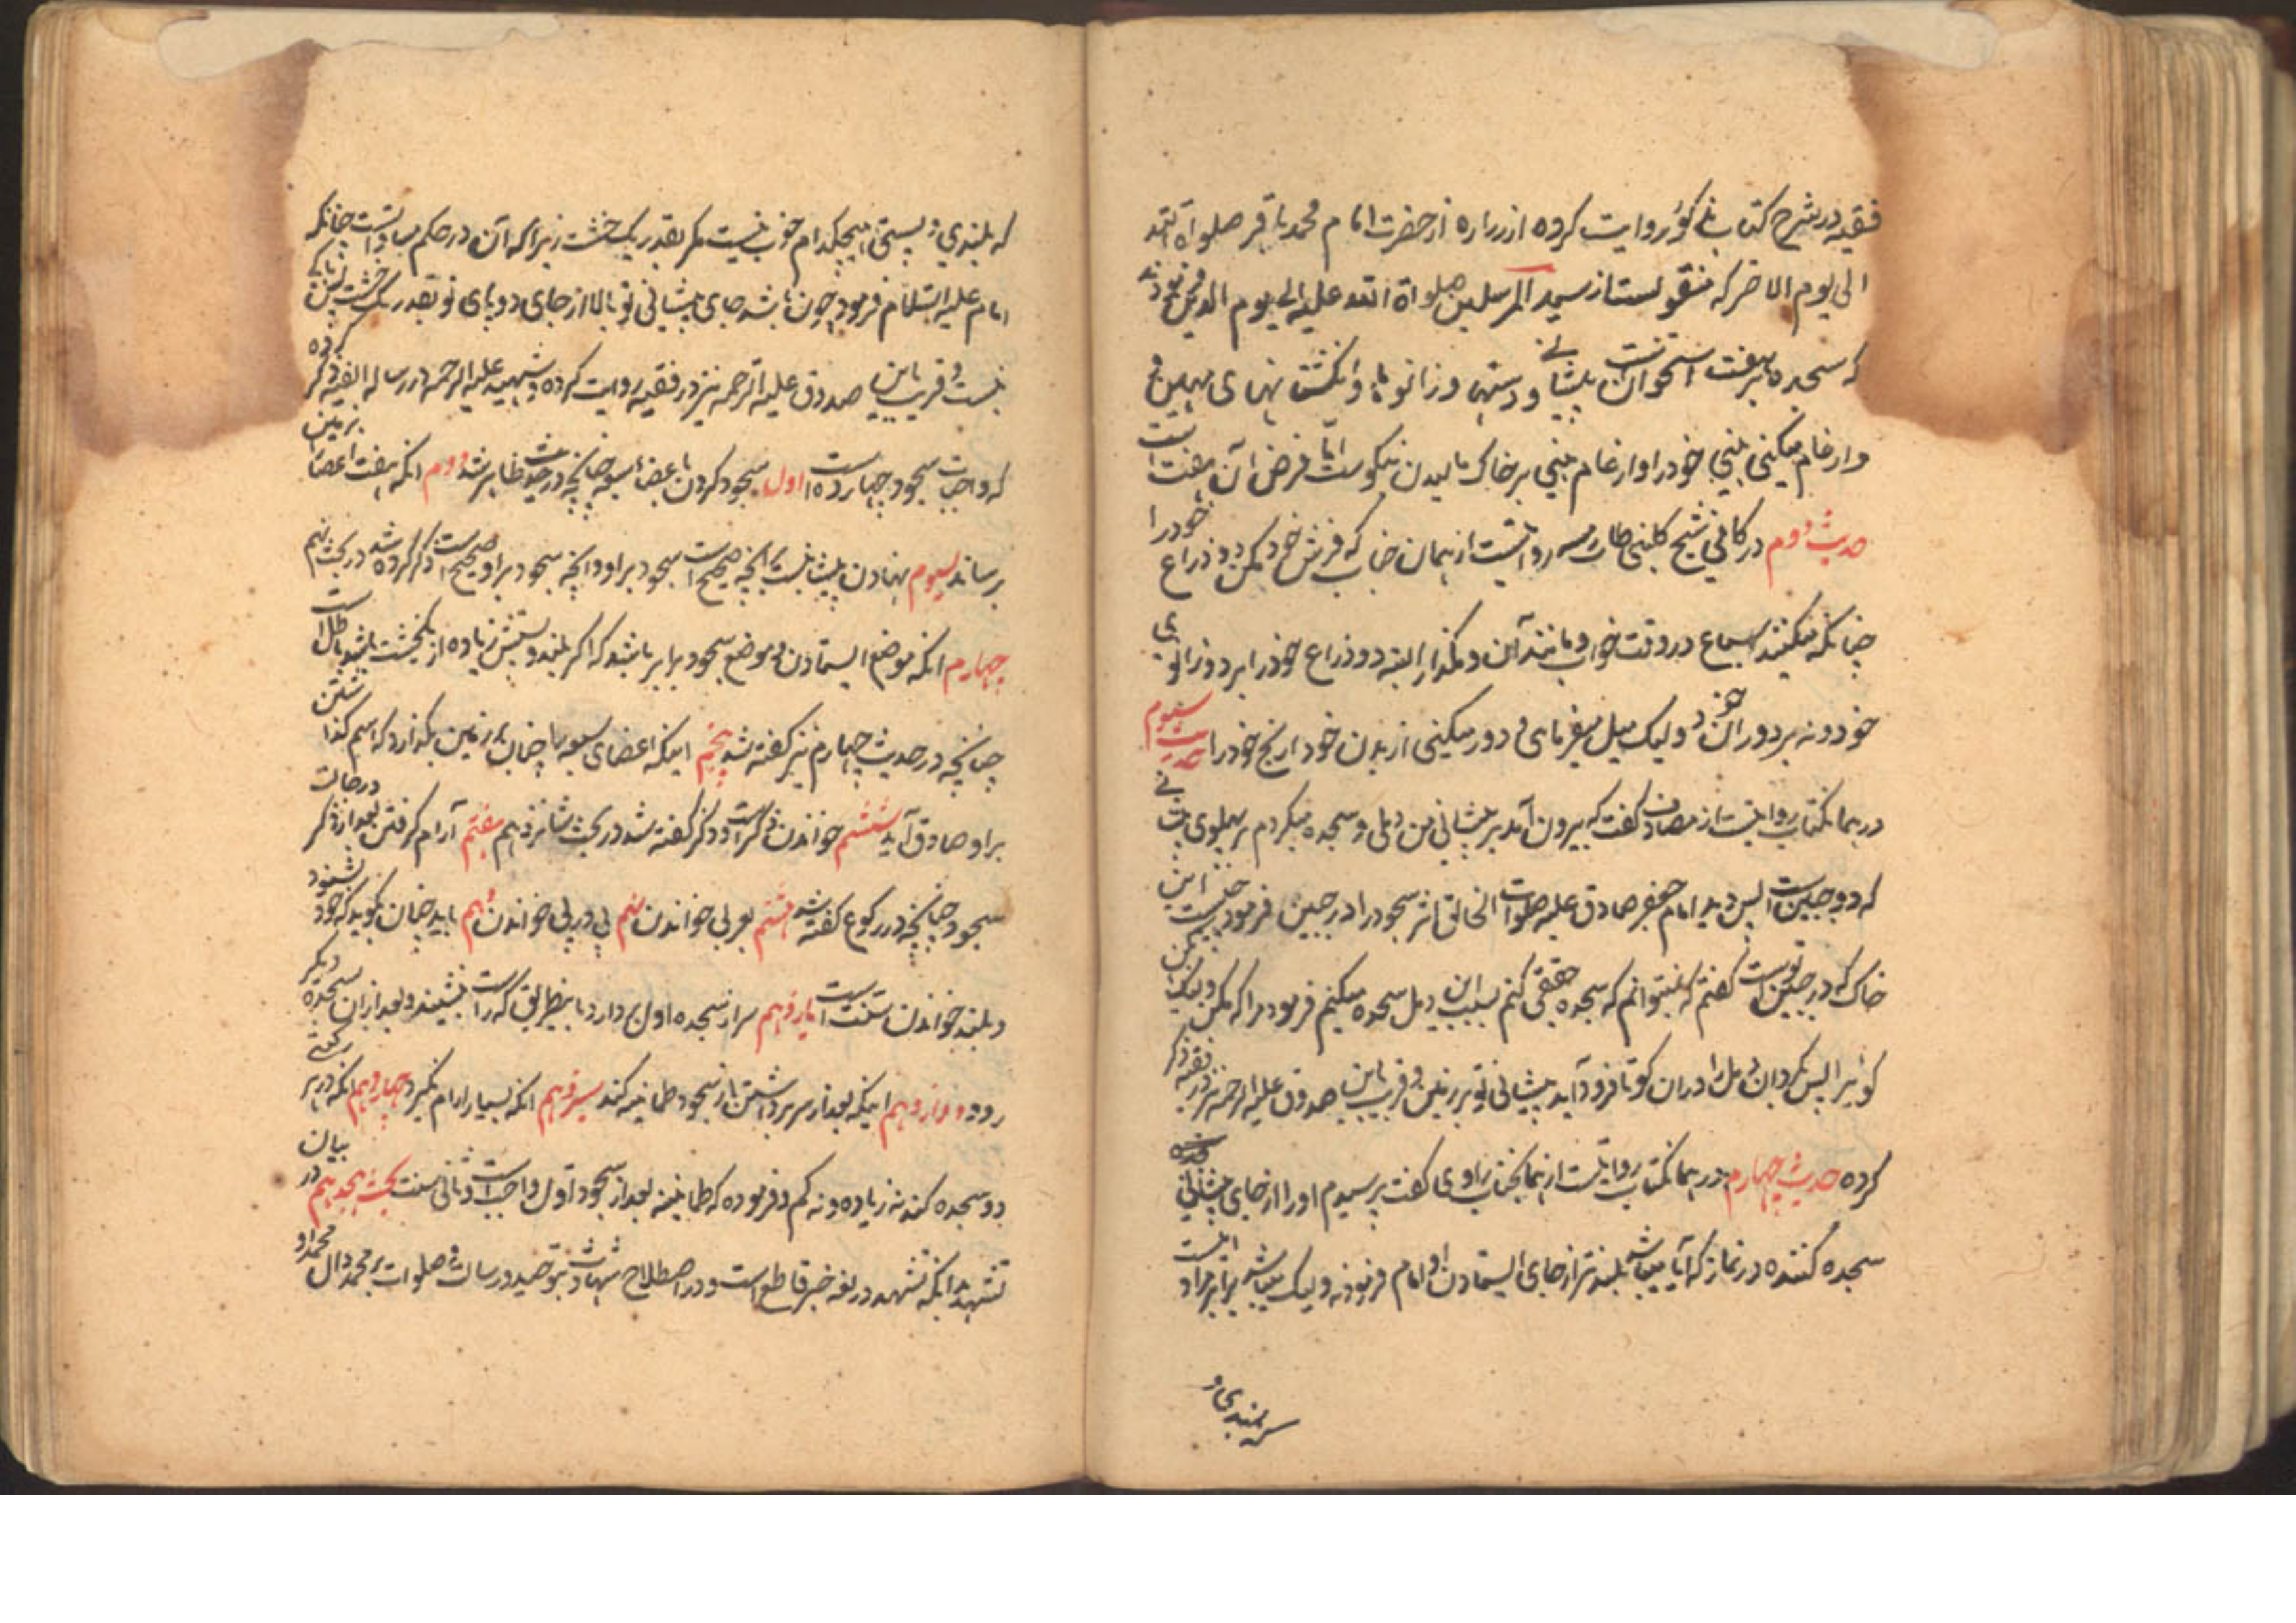 فقیه در شرح کتاب روایت کرده از زراره از حضرت امام محمد باقر صلواة الله
الی یوم الاخر که منقولست از سید المرسلین صلواة الله علیه الی یوم الدین فرمودند
که سجده بر هفت استخوان است پیشانی و دستها و زانو ها و انگشت نهای مهین و
وارغام میکنی بینی خود را و ارغام بینی بر خاک مالیدن نیکوست امّا فرض آن هفت است
حدیث دوم در کافی شیخ کلینی روایتست از همان جناب که فرش خود مکن دو ذراع خود را
چنانکه میکنند سباع در وقت خواب و مانند آن و مگذار البته دو ذراع خود را بر دو زانوی
خود و نه بر دو ران خود ولیک میل میفرمای و دور میکنی از بدن خود ارنج خود را حدیث سیوم
در همان کتاب روایتست از مصادف گفت که بیرون آمد بر پیشانی من دملی و سجده میکردم بر پهلوی
که دو جبین است پس دید امام جعفر صادق علیه صلوات الخالق اثر سجود را در جبین فرمود چیست این
خاک که در جبین توست گفتم که نمیتوانم که سجده حقیقی کنم بسبب این دمل سجده میکنم فرمود مرا که مکن ولیکن بکن
کوئیرا پس بگردان دمل را در ان کو تا فرود آید پیشانی تو بر زمین و قریب باین صدوق علیه الرحمه نیز در فقیه ذکر
کرده حدیث چهارم در همان کتاب روایتست از همان جناب راوی گفت پرسیدم او را از جای پیشانی
سجده کننده در نماز که آیا میباشد بلندتر از جای ایستادن او امام فرمود نه ولیک میباشد برابر مراد اینست
که بلندی و
که بلندی و پستی هیچکدام خوب نیست مکر بقدر یک خشت زیرا که آن در حکم مساواتست چنانکه
امام علیه السّلام فرمود چون باشد جای پیشانی تو بالا از جای دو پای تو بقدر یک خشت پس باکی
نیست و قریب باین صدوق علیه الرّحمه نیز در فقیه روایت کرده و شهید علیه الرحمه در رساله الفیه ذکر کرده
که واجبات سجود چهارده است اول سجود کردن باعضاء سبعه چنانچه در حدیث ظاهر شد دوم انکه هفت اعضا بزمین
برساند سیوم نهادن پیشانیست بآنچه صحیح است سجود بر او و انچه سجود بر او صحیح است ذکر کرده شد در بحث نهم
چهارم انکه موضع ایستادن و موضع سجود برابر باشد که اکر بلند و پستیش زیاده از یکخشت باشد باطل است
چنانچه در حدیث چهارم نیز گفته شد پنجم اینکه اعضای سبعه را چنان بر زمین بگذارد که اسم گذاشتن
بر او صادق آید ششم خواندن ذکر است و ذکر گفته شد در بحث شانزدهم هفتم آرام گرفتن بعد از ذکر در حالت
سجود چنانچه در رکوع گفته شد هشتم بعربی خواندن نهم پی در پی خواندن دهم باید چنان بگوید که خود بشنود
و بلند خواندن سنّت است یازدهم سر از سجده اول بردارد باینطریق که راست بنشیند و بعد از ان سجده دیگر
رود دوازدهم اینکه بعد از سر برداشتن از سجود طمانینه کند سیزدهم انکه بسیار ارام نگیرد چهاردهم انکه در هر رکعتی
دو سجده کند نه زیاده و نه کم و فرموده که طمانینه بعد از سجود اوّل واجب است و ثانی سنت بحث هجدهم در بیان
تشهّد بدانکه تشهد در لغه خبر قاطع است و در اصطلاح شهادت بتوحید و رسالت و صلوات بر محمد و ال محمد او